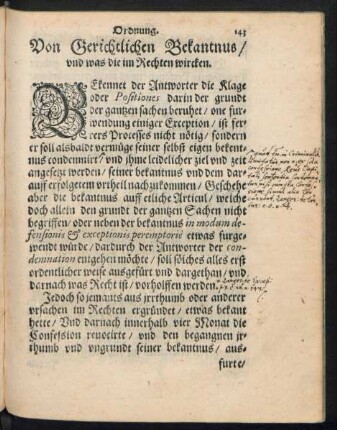 Ordnung. 143
Von Gerichtlichen Bekantnus /
vnd was die im Rechten wircken.
BEkennet der Antworter die Klage
oder Positiones darin der grundt
der gantzen sachen beruhet / one fur-
wendung einiger Exception / ist fer-
rers Processes nicht nötig / sondern
er soll alsbaldt vermüge seiner selbst eigen bekent-
nus condemnirt / vnd ihme leidelicher ziel vnd zeit
angesetzt werden / seiner bekantnus vnd dem dar-
auf erfolgetem vrtheil nachzukommen / Geschehe
aber die bekantnus auff etliche Articul / welche
doch allein den grunt der gantzen Sachen nicht
begriffen / oder neben der bekantnus in modum de-
fensionis & exceptionis peremptoriæ etwas furge-
wendt würde / dardurch der Antworter der con-
demnation entgehen möchte / soll solches alles erst
ordentlicher weise ausgefürt vnd dargethan / vnd
darnach was Recht ist / vorholffen werden.
Jedoch so jemants aus jrrthumb oder anderer
vrsachen im Rechten ergründet / etwas bekant
hette / Vnd darnach innerhalb vier Monat die
Confession reuocirte / vnd den begangnen jr-
thumb vnd vngrundt seiner bekantnus / aus-
furte /